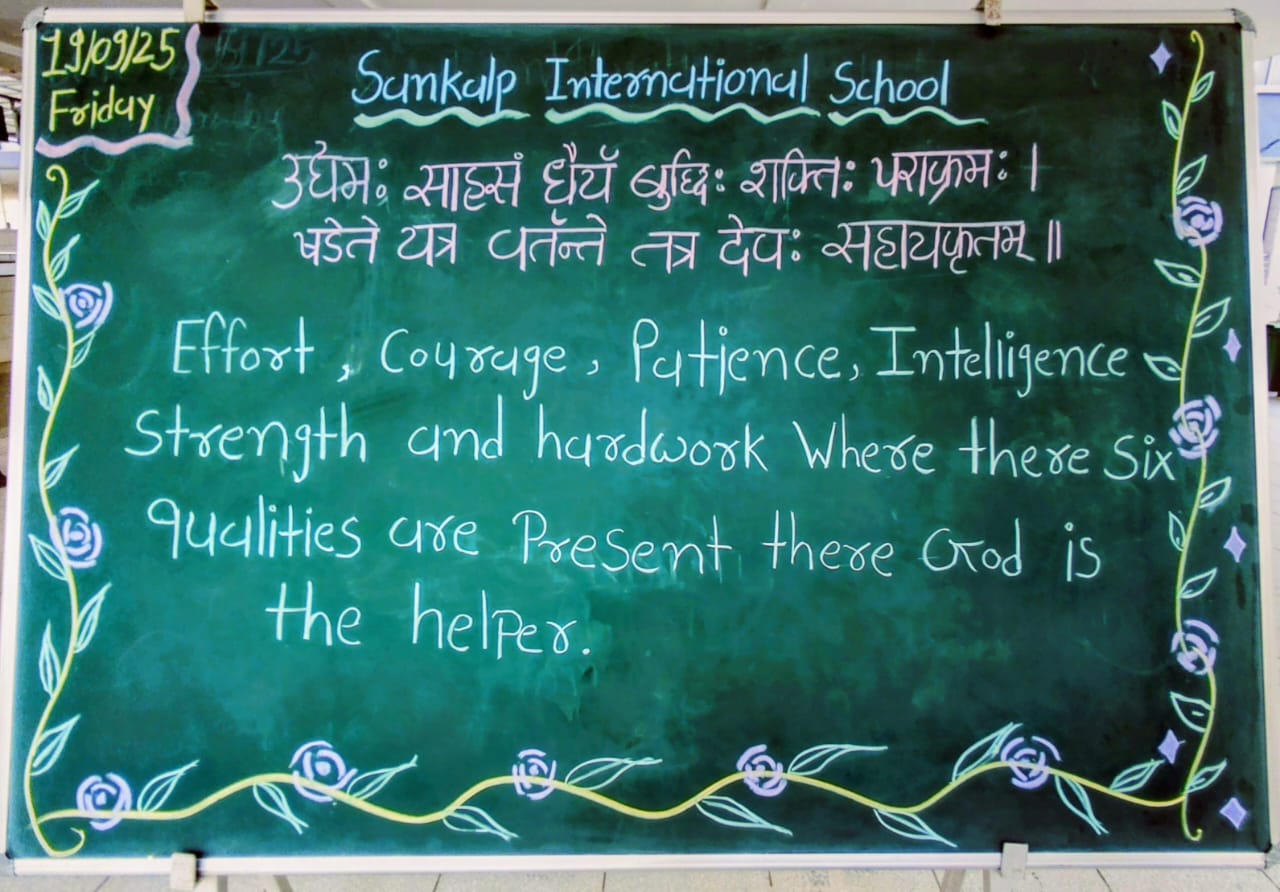 19/09/25
Friday
Samkalp International School
उद्येमः साहसं धैर्यं बुद्धिः शक्तिः पराक्रमः ।
षडेते यत्र वर्तन्ते तत्र देवः सहायकृतम् ॥
Effort, Courage, Patience, Intelligence
Strength and hardwork Where there Six
qualities are Present there God is
the helper.